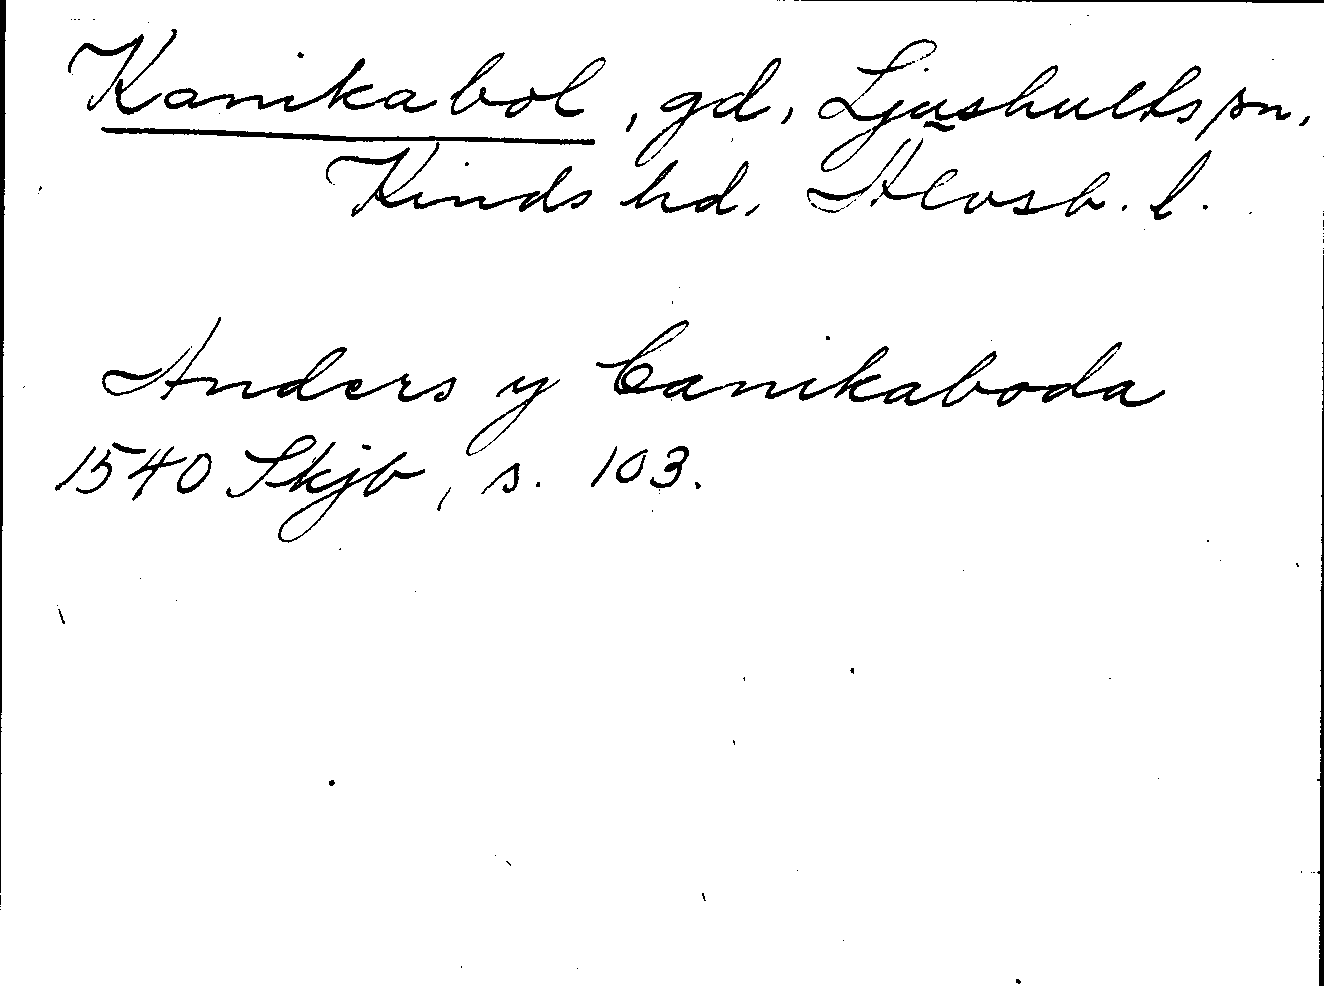 Kanikabol, gd, Ljushults sn,
Kinds hd, Älvsb. l.
Anders y Canikaboda
1540 Skjb, s. 103.